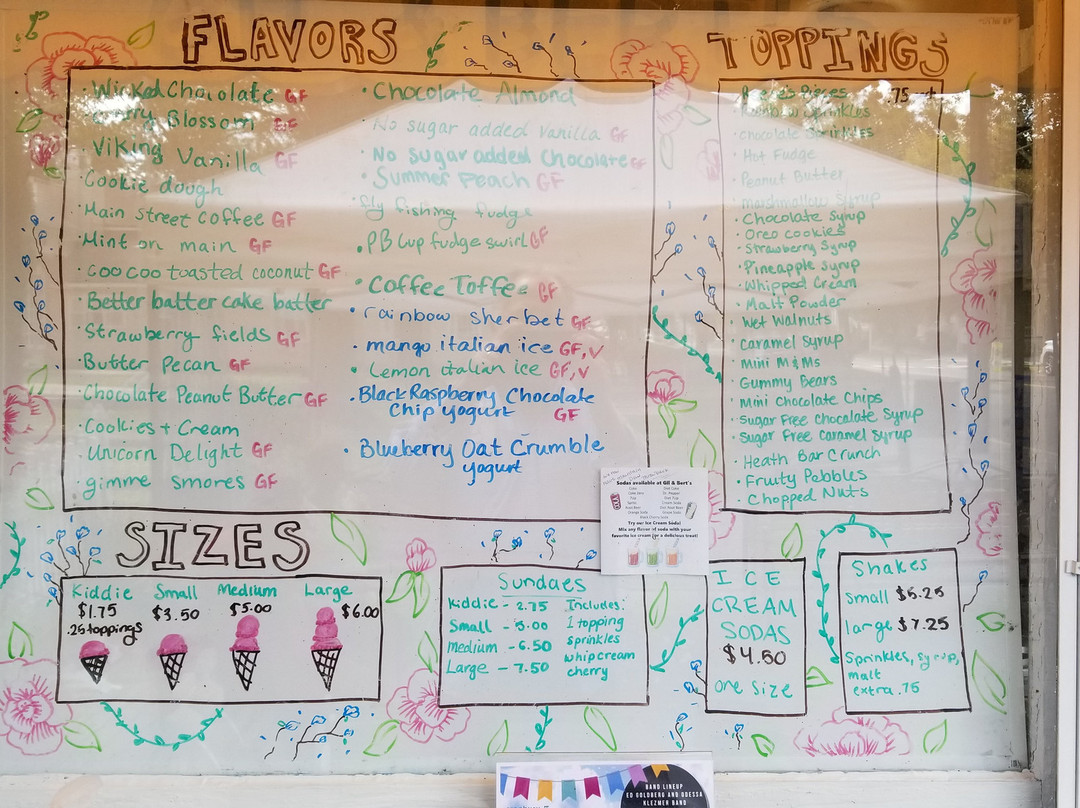 FLAVORS
· Wicked Chocolate GF
Cherry Blossom GF
· Viking Vanilla GF
· Cookie dough
· Main street coffee GF
· Mint on main GF
· Coo Coo toasted coconut GF
· Better batter cake batter
· Strawberry fields GF
· Butter Pecan GF
· Chocolate Peanut Butter GF
· Cookies + Cream
· Unicorn Delight GF
· gimme smores GF
· Chocolate Almond
No sugar added vanilla GF
· No sugar added Chocolate GF
· Summer Peach GF
· fly fishing fudge
· PB Cup fudge swirl GF
· Coffee Toffee GF
· rainbow sherbet GF
· mango italian ice GF, V
· Lemon italian ice GF, V
· Black Raspberry Chocolate
Chip yogurt GF
· Blueberry Oat Crumble
yogurt
TOPPINGS
Reese's Pieces .75
Rainbow Sprinkles
· chocolate sprinkles
· Hot Fudge
· Peanut Butter
· marshmallow syrup
· Chocolate syrup
· Oreo cookies
· Strawberry Syrup
· Pineapple Syrup
· Whipped Cream
· Malt Powder
· Wet Walnuts
· Caramel Syrup
· Mini M&Ms
· Gummy Bears
· Mini Chocolate Chips
· Sugar Free Chocalate Syrup
· Sugar Free Caramel Syrup
· Heath Bar Crunch
· Fruity Pebbles
· Chopped Nuts
Sodas available at Gil & Bert's
Try our Ice Cream Soda!
Mix any flavor of soda with your
favorite ice cream for a delicious treat!
SIZES
Kiddie Small Medium Large
$1.75 $3.50 $5.00 $6.00
.25 toppings
Sundaes
Kiddie - 2.75 Includes:
Small - 5.00 1 topping
Medium - 6.50 sprinkles
Large - 7.50 whipcream
cherry
ICE
CREAM
SODAS
$4.50
one size
Shakes
small $5.25
large $7.25
Sprinkles, syrup,
malt
extra .75
BAND LINEUP
ED GOLDBERG AND ODESSA
KLEZMER BAND